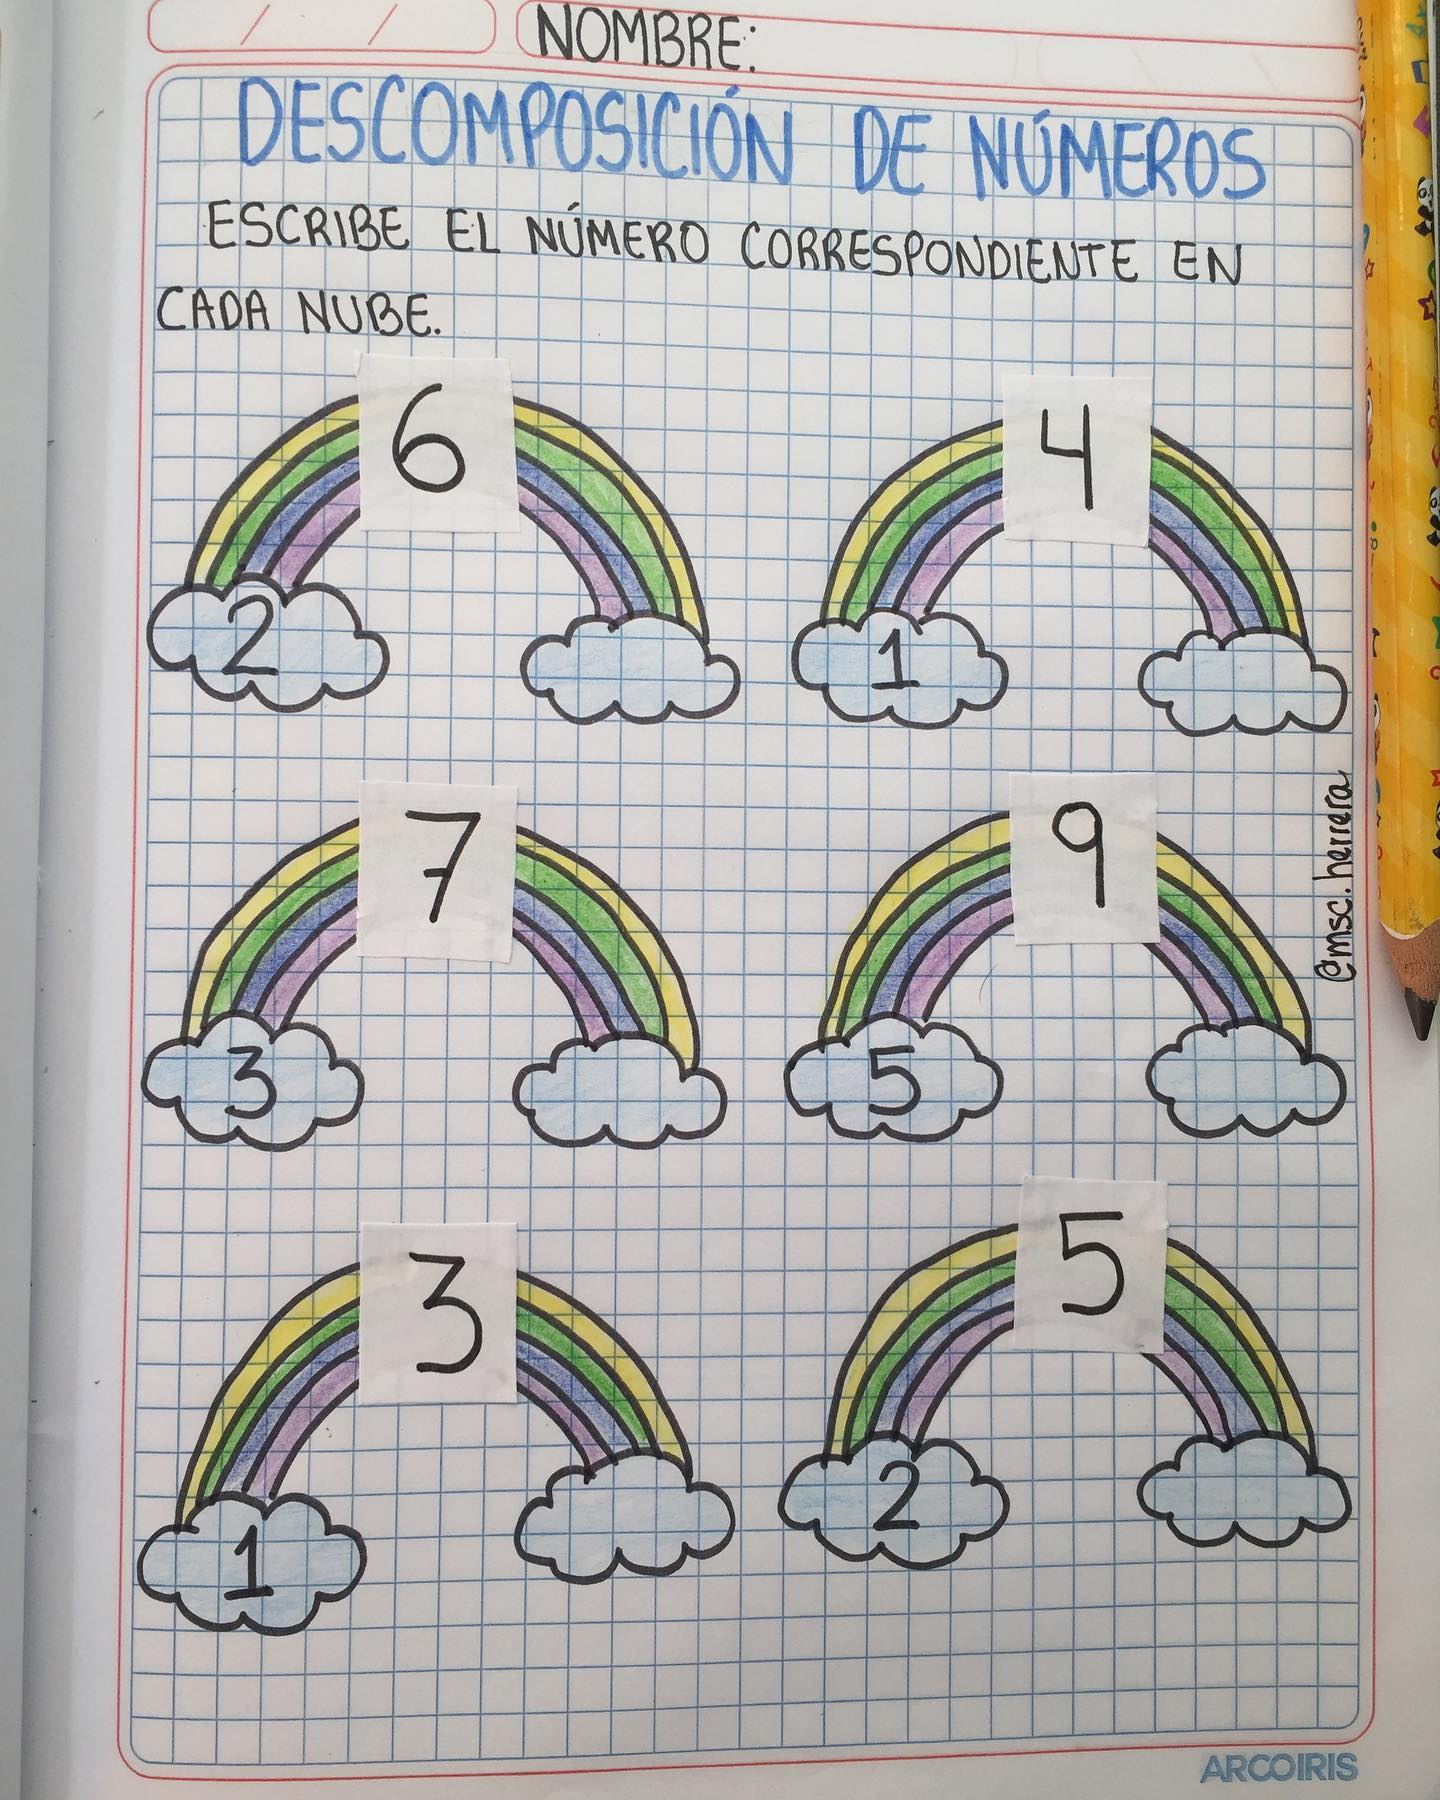 NOMBRE:
DESCOMPOSICIÓN DE NÚMEROS
ESCRIBE EL NÚMERO CORRESPONDIENTE EN
CADA NUBE.
6
2
4
1
7
3
9
5
@msc.herrera
3
1
5
2
ARCOIRIS